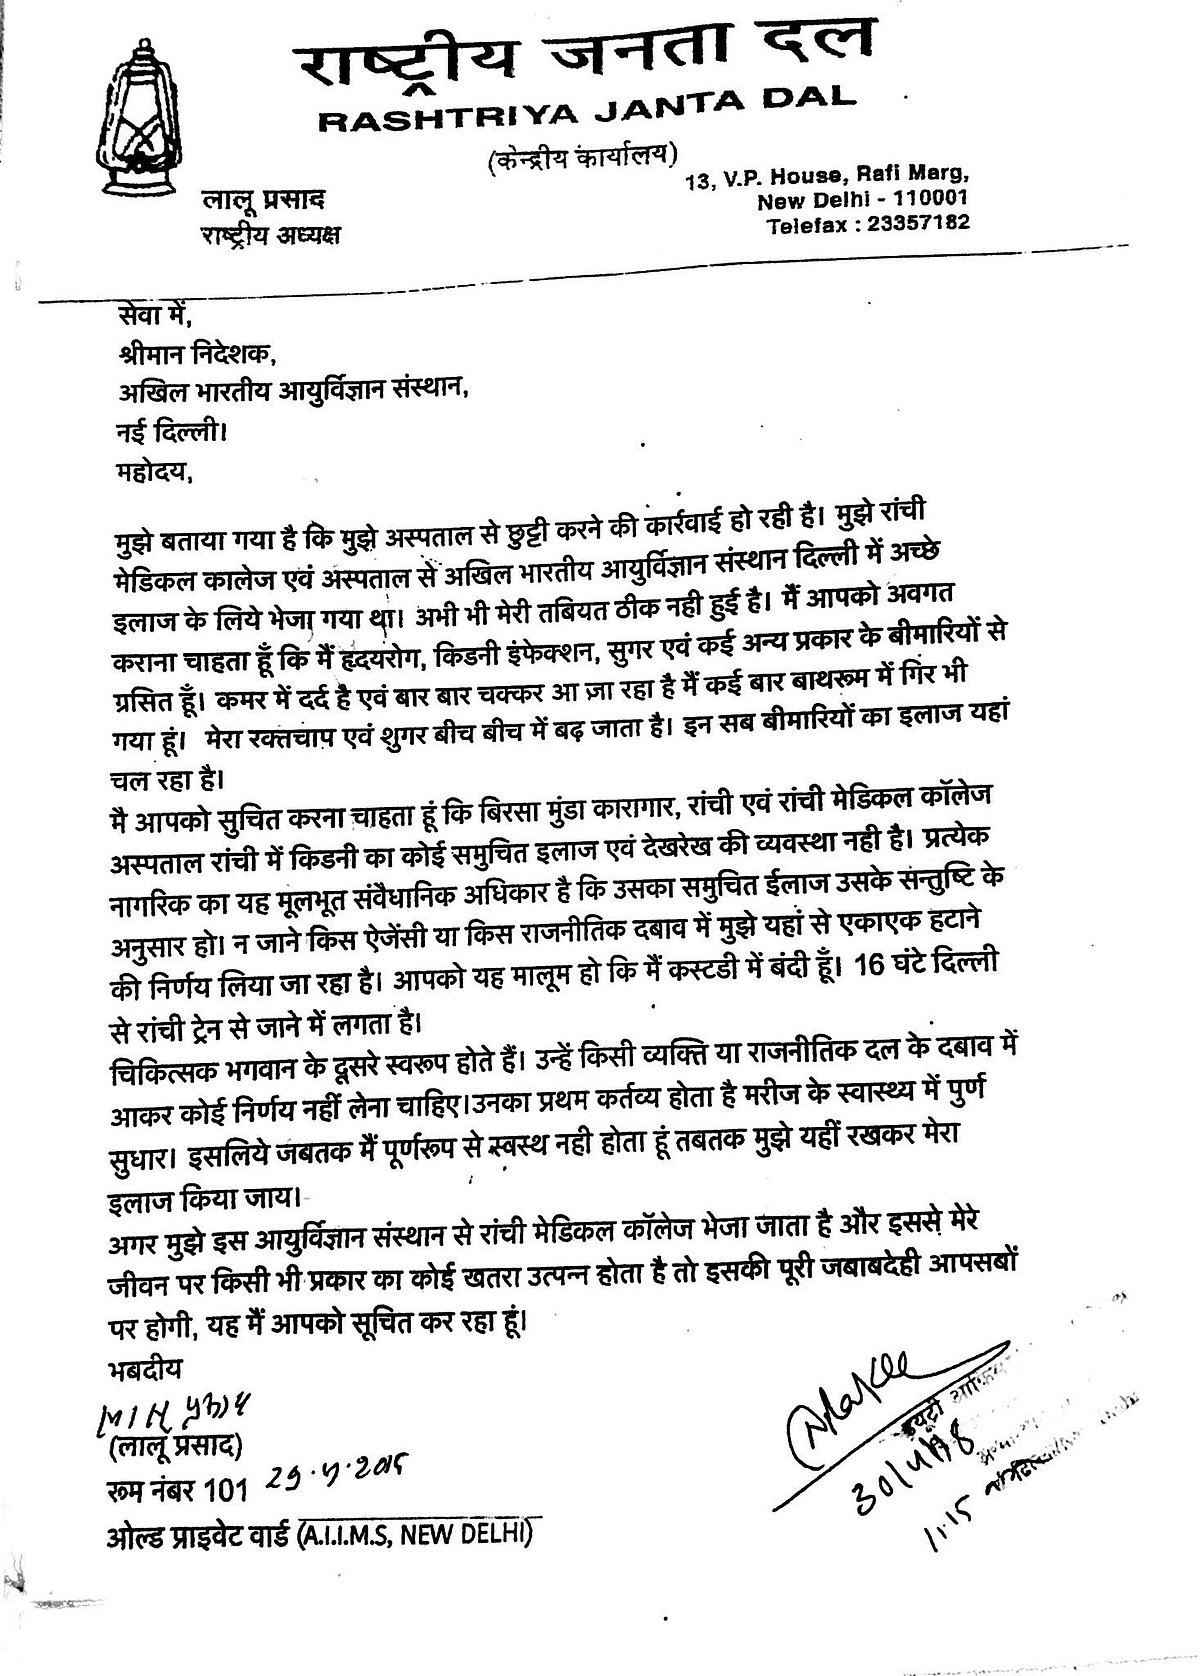 राष्ट्रीय जनता दल
RASHTRIYA JANTA DAL
(केन्द्रीय कार्यालय)
13, V.P. House, Rafi Marg,
New Delhi - 110001
Telefax : 23357182
लालू प्रसाद
राष्ट्रीय अध्यक्ष
सेवा में,
श्रीमान निदेशक,
अखिल भारतीय आयुर्विज्ञान संस्थान,
नई दिल्ली।
महोदय,
मुझे बताया गया है कि मुझे अस्पताल से छुट्टी करने की कार्रवाई हो रही है। मुझे रांची
मेडिकल कालेज एवं अस्पताल से अखिल भारतीय आयुर्विज्ञान संस्थान दिल्ली में अच्छे
इलाज के लिये भेजा गया था। अभी भी मेरी तबियत ठीक नही हुई है। मैं आपको अवगत
कराना चाहता हूँ कि मैं हृदयरोग, किडनी इंफेक्शन, सुगर एवं कई अन्य प्रकार के बीमारियों से
ग्रसित हूँ। कमर में दर्द है एवं बार बार चक्कर आ जा रहा है मैं कई बार बाथरूम में गिर भी
गया हूं। मेरा रक्तचाप एवं शुगर बीच बीच में बढ़ जाता है। इन सब बीमारियों का इलाज यहां
चल रहा है।
मै आपको सुचित करना चाहता हूं कि बिरसा मुंडा कारागार, रांची एवं रांची मेडिकल कॉलेज
अस्पताल रांची में किडनी का कोई समुचित इलाज एवं देखरेख की व्यवस्था नही है। प्रत्येक
नागरिक का यह मूलभूत संवैधानिक अधिकार है कि उसका समुचित ईलाज उसके सन्तुष्टि के
अनुसार हो। न जाने किस ऐजेंसी या किस राजनीतिक दबाव में मुझे यहां से एकाएक हटाने
की निर्णय लिया जा रहा है। आपको यह मालूम हो कि मैं कस्टडी में बंदी हूँ। 16 घंटे दिल्ली
से रांची ट्रेन से जाने में लगता है।
चिकित्सक भगवान के दूसरे स्वरूप होते हैं। उन्हें किसी व्यक्ति या राजनीतिक दल के दबाव में
आकर कोई निर्णय नहीं लेना चाहिए।उनका प्रथम कर्तव्य होता है मरीज के स्वास्थ्य में पुर्ण
सुधार। इसलिये जबतक मैं पूर्णरूप से स्वस्थ नही होता हूं तबतक मुझे यहीं रखकर मेरा
इलाज किया जाय।
अगर मुझे इस आयुर्विज्ञान संस्थान से रांची मेडिकल कॉलेज भेजा जाता है और इससे मेरे
जीवन पर किसी भी प्रकार का कोई खतरा उत्पन्न होता है तो इसकी पूरी जबाबदेही आपसबों
पर होगी, यह मैं आपको सूचित कर रहा हूं।
भबदीय
(लालू प्रसाद)
रूम नंबर 101
ओल्ड प्राइवेट वार्ड (A.I.I.M.S, NEW DELHI)
ड्यूटी
30/4/18
11.15